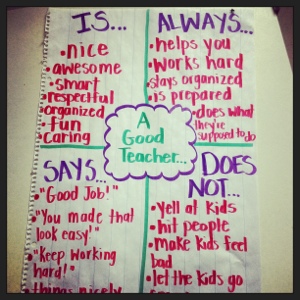 IS...
• nice
• awesome
• smart
• respectful
organized
• fun
• caring
ALWAYS...
• helps you
• works hard
stays organized
• is prepared
• does what
they're
supposed to do
A
Good
Teacher...
SAYS...
• "Good Job!"
• "You made that
look easy!"
• "Keep working
hard!"
• things nicely
DOES
NOT...
• yell at kids
• hit people
• make kids feel
bad
• let the kids go